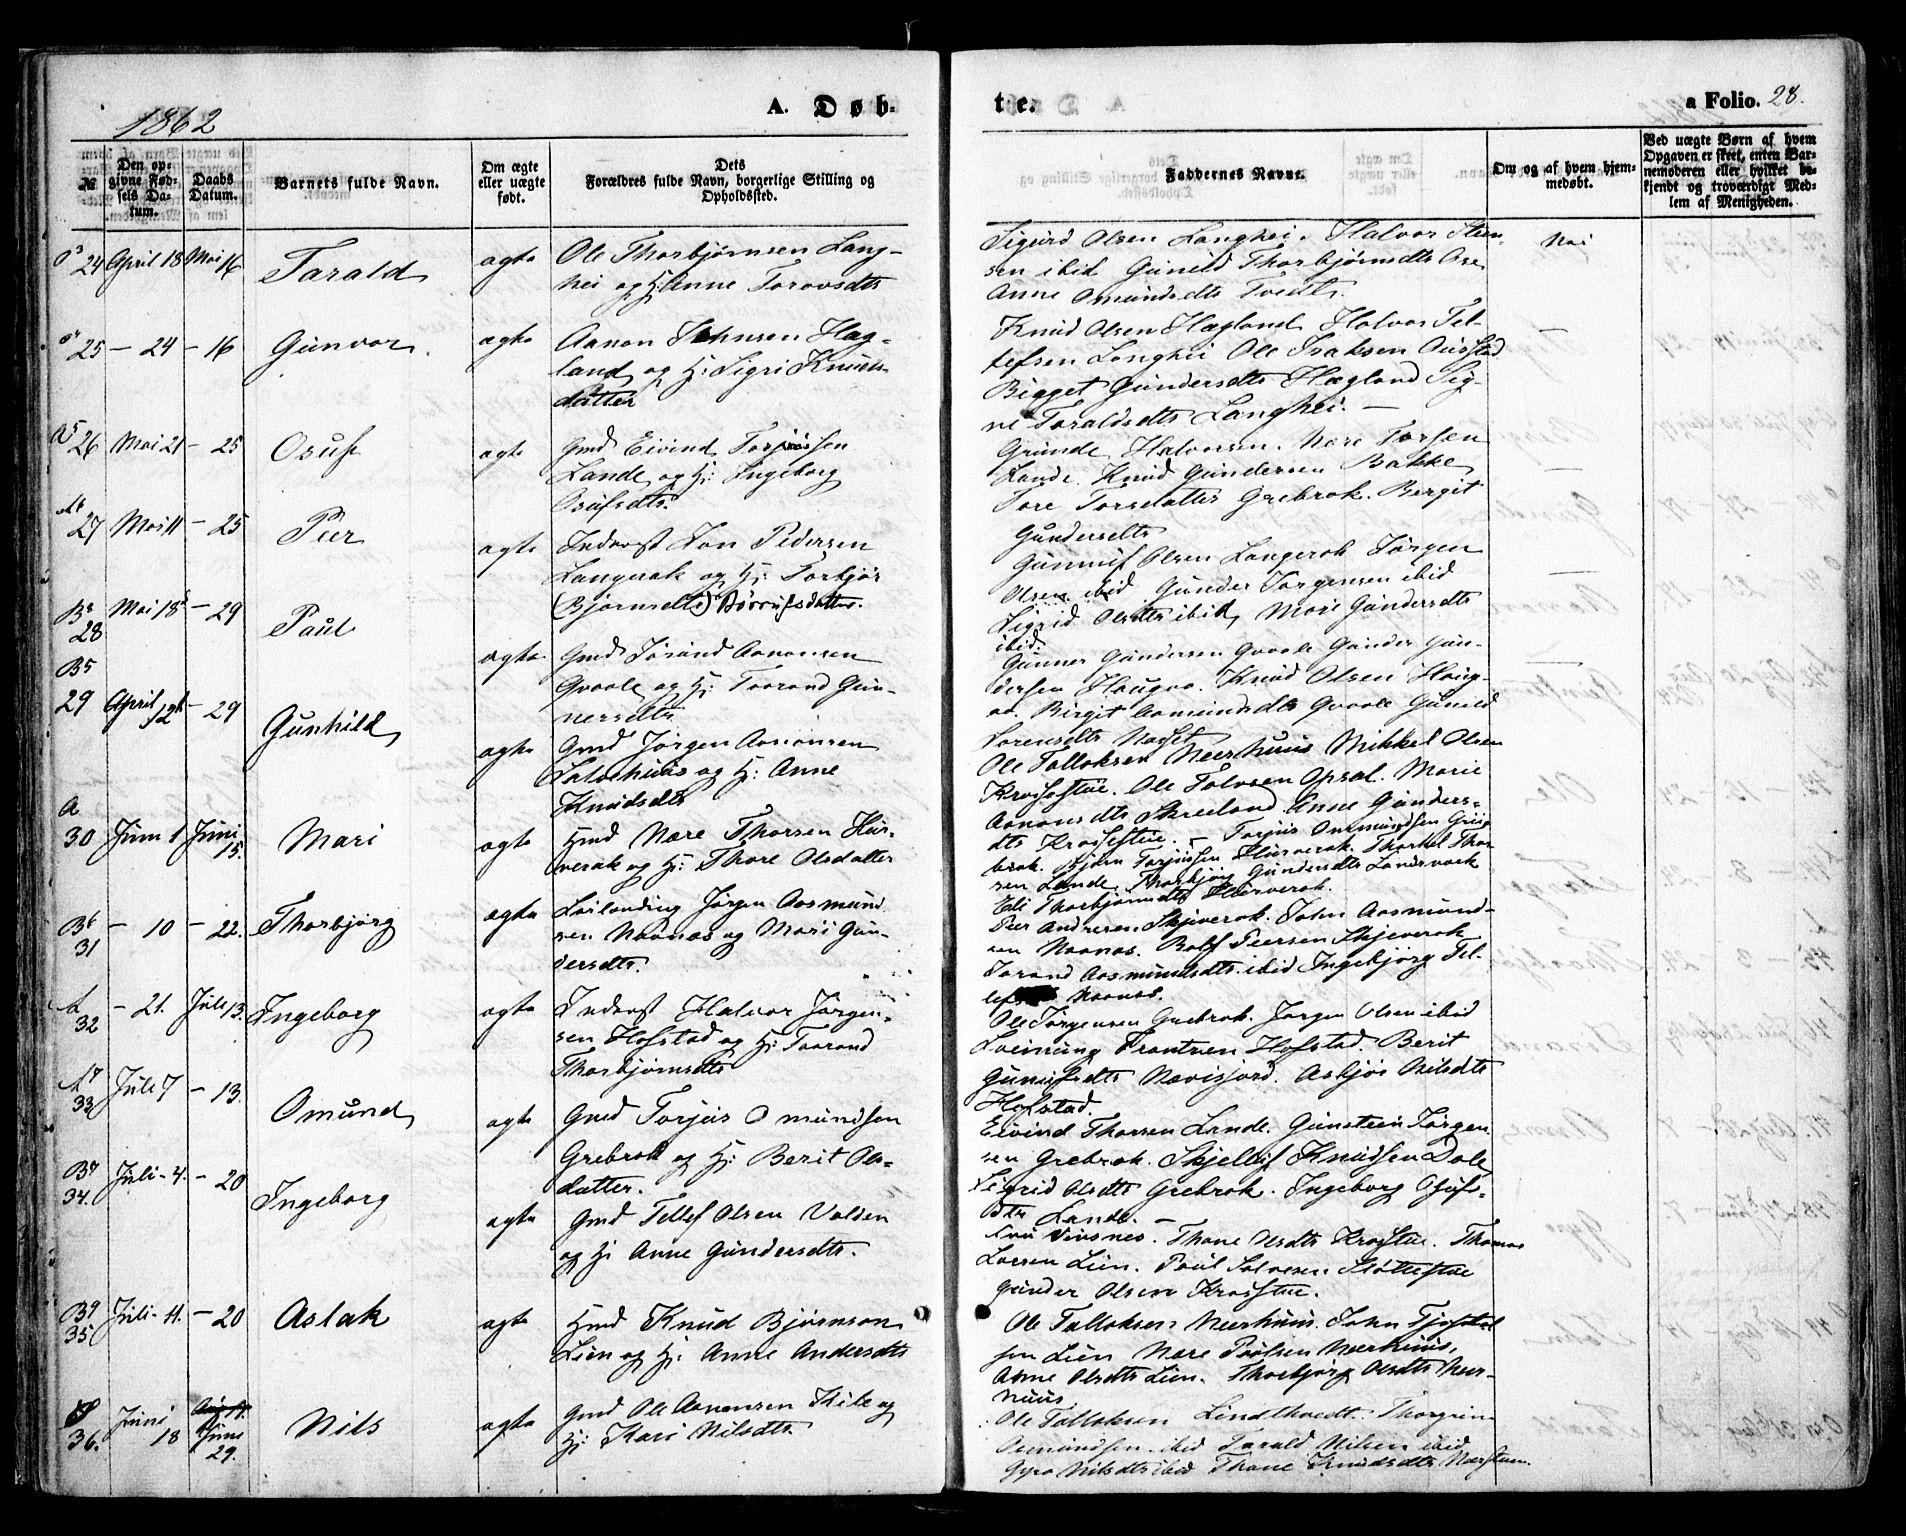 1862
A. Døb-
te.
a Folio. 28.
№
Den op-
givne Fød-
sels Da-
tum.
Daabs
Datum.
Barnets fulde Navn.
Om ægte
eller uægte
født.
Dets
Forældres fulde Navn, borgerlige Stilling og
Opholdssted.
Faddernes Navne.
Om og af hvem hjem-
medøbt.
Ved uægte Børn af hvem
Opgaven er skeet, enten Bar-
nemoderen eller hvilket be-
kjendt og troværdigt Med-
lem af Menigheden.
24 April 18 Mai 16 Tarald ægte
Ole Thorbjørnsen Lang-
hei og H: Anne Torovsdts
Sigurd Olsen Langhei. Halvor Steen-
sen ibid Gunild Thorbjørnsdts Ose
Anne Omundsdts Tvedt.
Nei
25 – 24 – 16 Gunvor. ægte
Aanon Johnsen Hæg-
land og H: Sigri Knuds-
datter
Knud Olsen Hægland Halvor Tel-
lefsen Langhei Ole Isaksen
Birgit Gundersdts Hægland Sig-
ne Taraldsdts Langhei. –
26 Mai 21 – 25 Osuf ægte
Gmd Eivind Torjussen
Lande og H: Ingeborg
Osufsdts.
Gunde Halvorsen. Nære Torsen
Lande. Knud Gundersen Bakke
Tore Torsdatter Grebrok. Bergit
Gundersdts
27 Mai 11 – 25 Peer ægte
Inderst Jon Pedersen
Langerak og H: Torbjør
(Bjørnsdts) Børrufsdatter.
Gunnuf Olsen Langerak Jørgen
Olsen ibid Gunder Jørgensen ibid
Sigrid Olsdts ibid, Mari Gundersdts
ibid.
B2
28 Mai 18 – 29 Paul ægte
Gmd Jørund Aanonsen
Qvaale og H: Taarand Gun-
nersdts
Gunner Gundersen Qvaale Gunder Gun-
dersen Haugaa. Knud Olsen Haug-
aa. Birgit Aamundsdts Qvaale Gunild
Sorensdts Naset
B5
29 April 12 – 29 Gunhild ægte
Gmd Jørgen Aanonsen
og H: Anne
Knudsdts
Ole Tallaksen Neerhuus Mikkel Olsen
Krossestue. Ole Salvesen Opsal. Marie
Aanonsdts Skreeland Anne Gunders-
dts Krossestue. –
A
30 Juni 1 Juni 15. Mari ægte
Hmd Nære Thorsen Hus-
verak og H: Thore Olsdatter
Torjus Ommundsen Greig
brok. Bjørn Torjussen Husverak. Thorkel Thor
sen Lande, Thorbjørg Gundersdts Landsverk
Eli Thorbjørnsdts Husverok.
B6
31 – 10 – 22. Thorbjørg ægte
Leilending Jørgen Aasmund
sen Naanas og Mari Gun-
dersdts.
Peer Andresen Skjeverak. John Aasmund-
sen Naanas. Rolf Peersen Skjeverak
Jorand Aasmundsdts ibid Ingebjørg Tel-
Naanas.
32 – 21. Juli 13. Ingeborg ægte
Inderst Halvor Jørgen-
sen Hofstad og H: Taarand
Thorbjørnsdts
Ole Jørgensen Grebrok. Jørgen Olsen ibid
Frantzen Hofstad. Berit
Gunufsdts Navisfjord. Asbjør Nilsdts
Hofstad.
33 Juli 7 – 13. Omund ægte
Gmd Torjus Omundsen
Grebrok og H: Berit Ols-
datter.
Eivind Thorsen Lande. Gunstein Jørgen
sen Grebrok. Skjelluf Knudsen Dale
Sigrid Olsdts Grebrok. Ingeborg Osufs-
dts Lande. –
34. Juli 4. – 20 Ingeborg ægte
Gmd Tellef Olsen Valden
og H: Anne Gundersdts.
Vivsnes. Thone Olsdts Krosstue. Thomas
Larsen Lien. Paul Salvesen Slottestue
Gunder Olsen Krosstue.
B9
35 Juli 11. – 20 Aslak ægte
Hmd Knud Bjørnson
Lien og H: Anne Andersdts
Ole Tallaksen Neerhuus. John Tjøstol
sen Lien Nære Poulsen Neerhuus.
Anne Olsdts Lien. Thorbjørg Olsdts Neer-
huus
36. Juni 18 Juni 29. Nils ægte
Gmd Ole Aanonsen Kile og
H: Kari Nilsdts
Ole Tallaksen Lindtveit. Thorgrim
Osmundsen ibid Tarald Nilsen ibid
Gyro Nilsdts ibid Thone Knudsdts Nærstuen